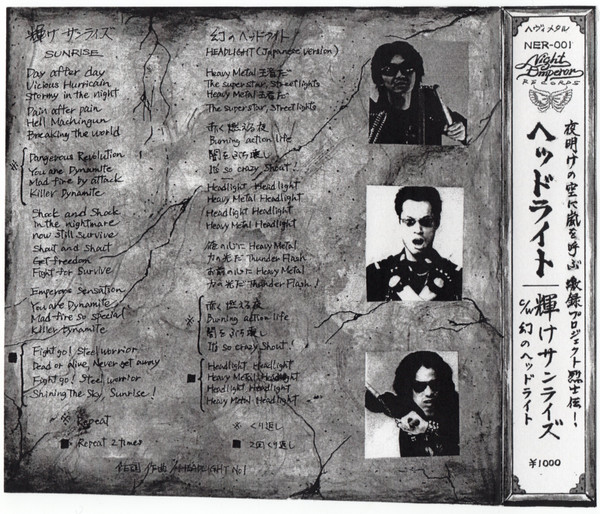 輝け サンライズ
SUNRISE
Day after day
Vicious Hurricain
Stormy in the night
Pain after pain
Hell Machingun
Breaking the world
Dangerous Revolution
You are Dynamite
Mad fire by attack
Killer Dynamite
Shock and Shock
In the nightmare
now still Survive
Shout and Shout
Get freedom
Fight for Survive
Emperors Sensation
You are Dynamite
Mad fire so special
Killer Dynamite
Fight go! Steel worrior
Dead or alive, Never get away
Fight go! Steel worrior
Shining The Sky, Sunrise!
※ Repeat
■ Repeat 2 times
幻のヘッドライト
HEADLIGHT (Japanese version)
Heavy Metal 王者だ
The superstar, Streetlights
Heavy Metal 王者だ
The superstar, Streetlights
赤く燃える夜
Burning action life
闇をぶち壊し
It's so crazy Shout!
Headlight Headlight
Heavy Metal Headlight
Headlight Headlight
Heavy Metal Headlight
俺の心に Heavy Metal
力の光だ Thunder Flash!
お前の心に Heavy Metal
力の光だ Thunder Flash!
赤く燃える夜
Burning action life
闇をぶち壊し
It's so crazy Shout!
Headlight Headlight
Heavy Metal Headlight
Headlight Headlight
Heavy Metal Headlight
※ くり返し
■ 2回くり返し
作詞/作曲/HEADLIGHT No1
ヘヴィメタル
NER-001
Night Emperor
RECORDS
夜明けの空に嵐を呼ぶ激録プロジェクト烈士伝!
ヘッドライト
輝けサンライズ
c/w 幻のヘッドライト
¥1000